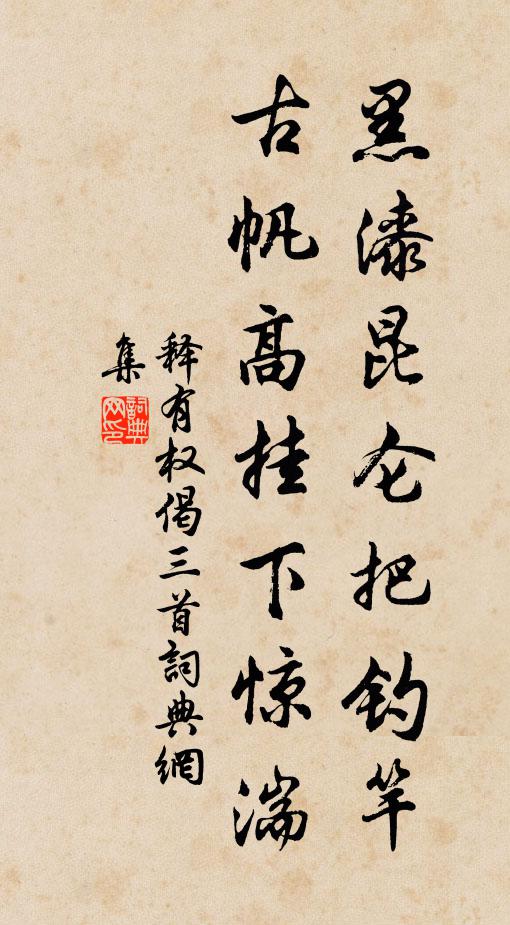 黑漆昆仑把钓竿
古帆高挂下惊湍
释有权偈三首詞典網
集
詞典網印